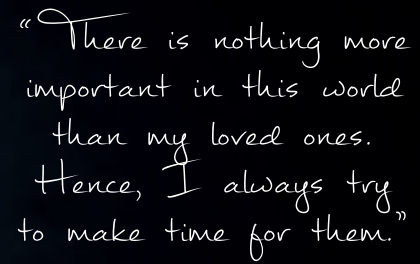 “There is nothing more
important in this world
than my loved ones.
Hence, I always try
to make time for them.”